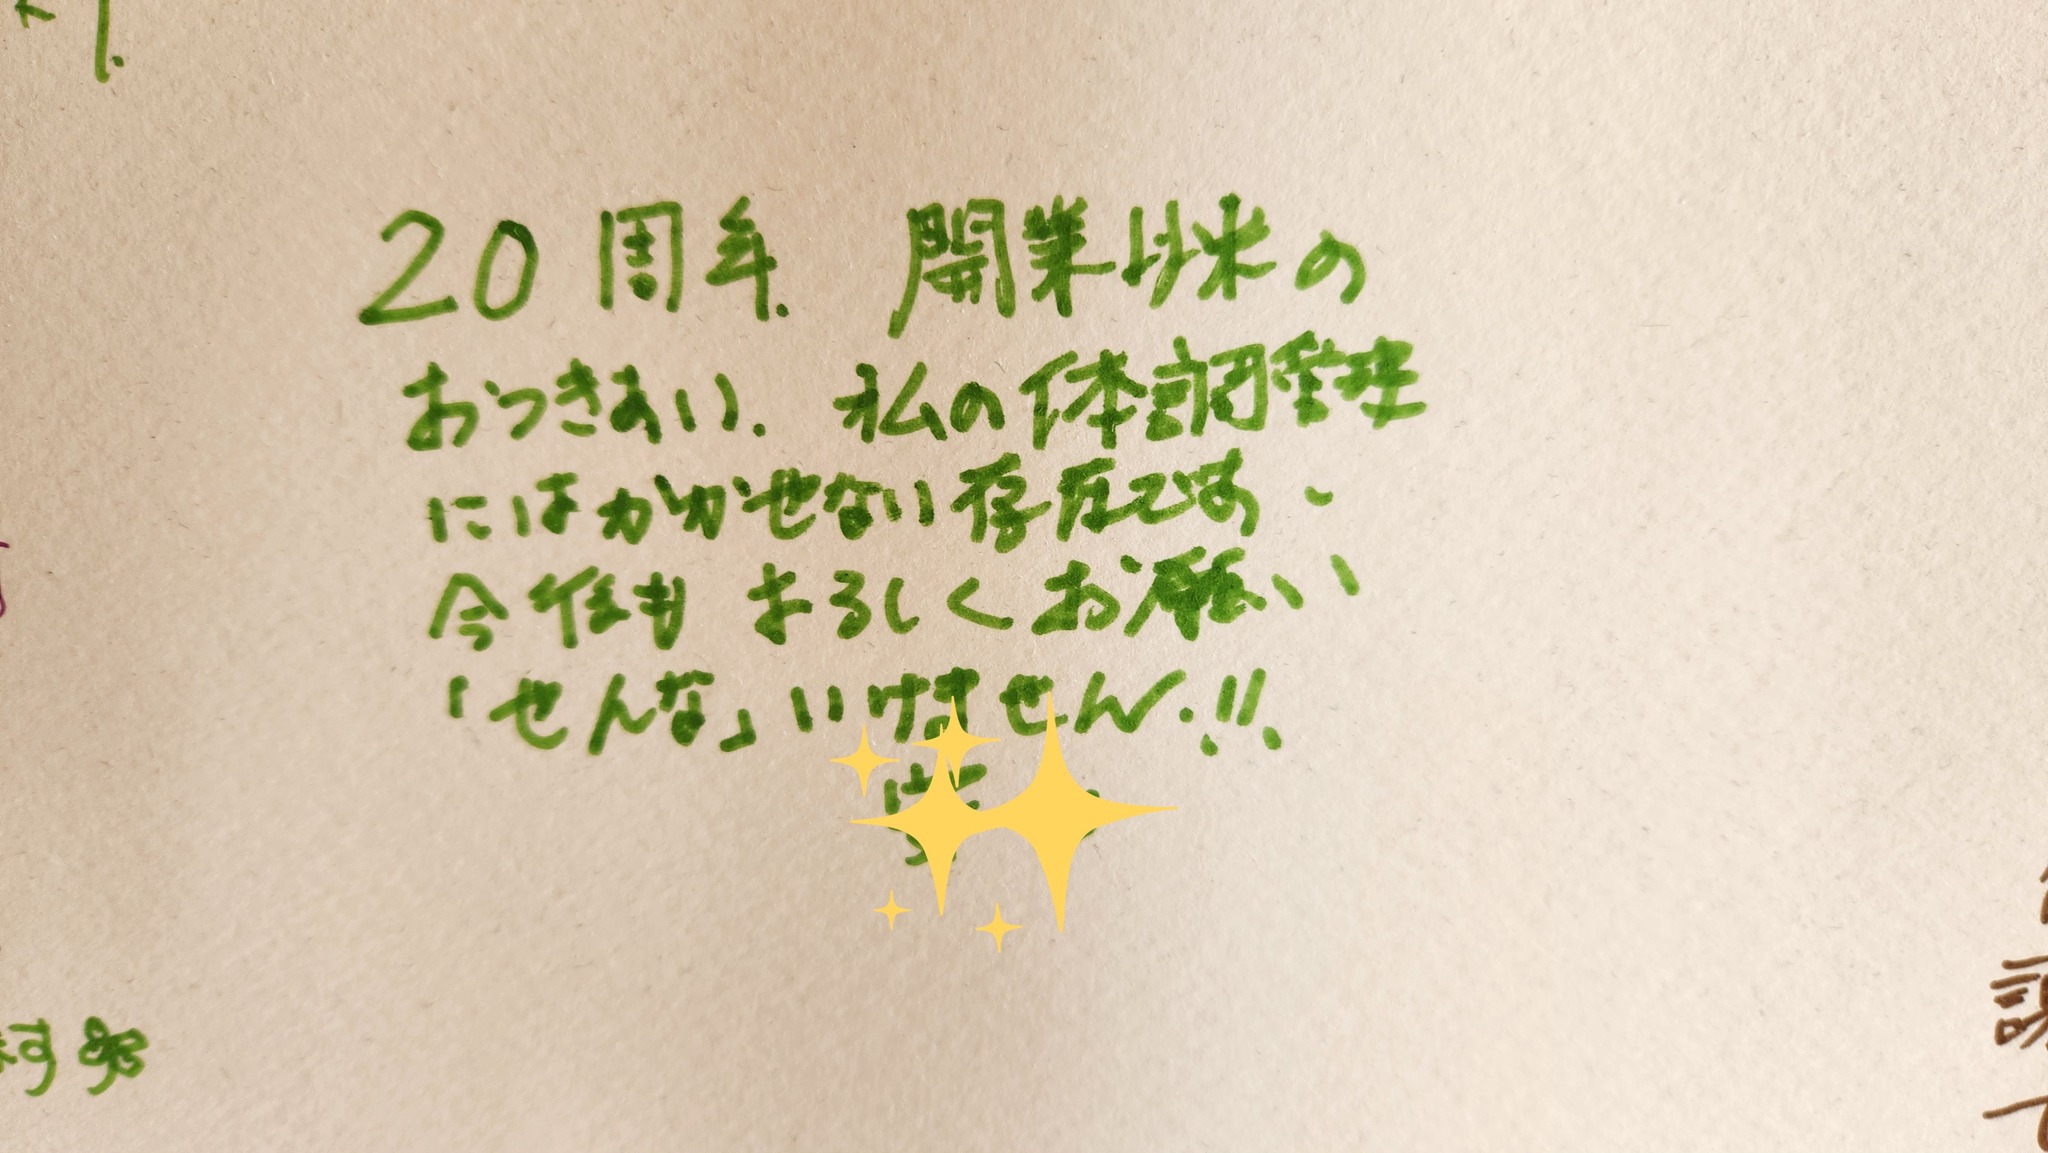 20周年. 開業以来の
おつきあい. 私の体調管理
にはかかせない存在です、
今後もよろしくお願い
「せんな」いけません.!!